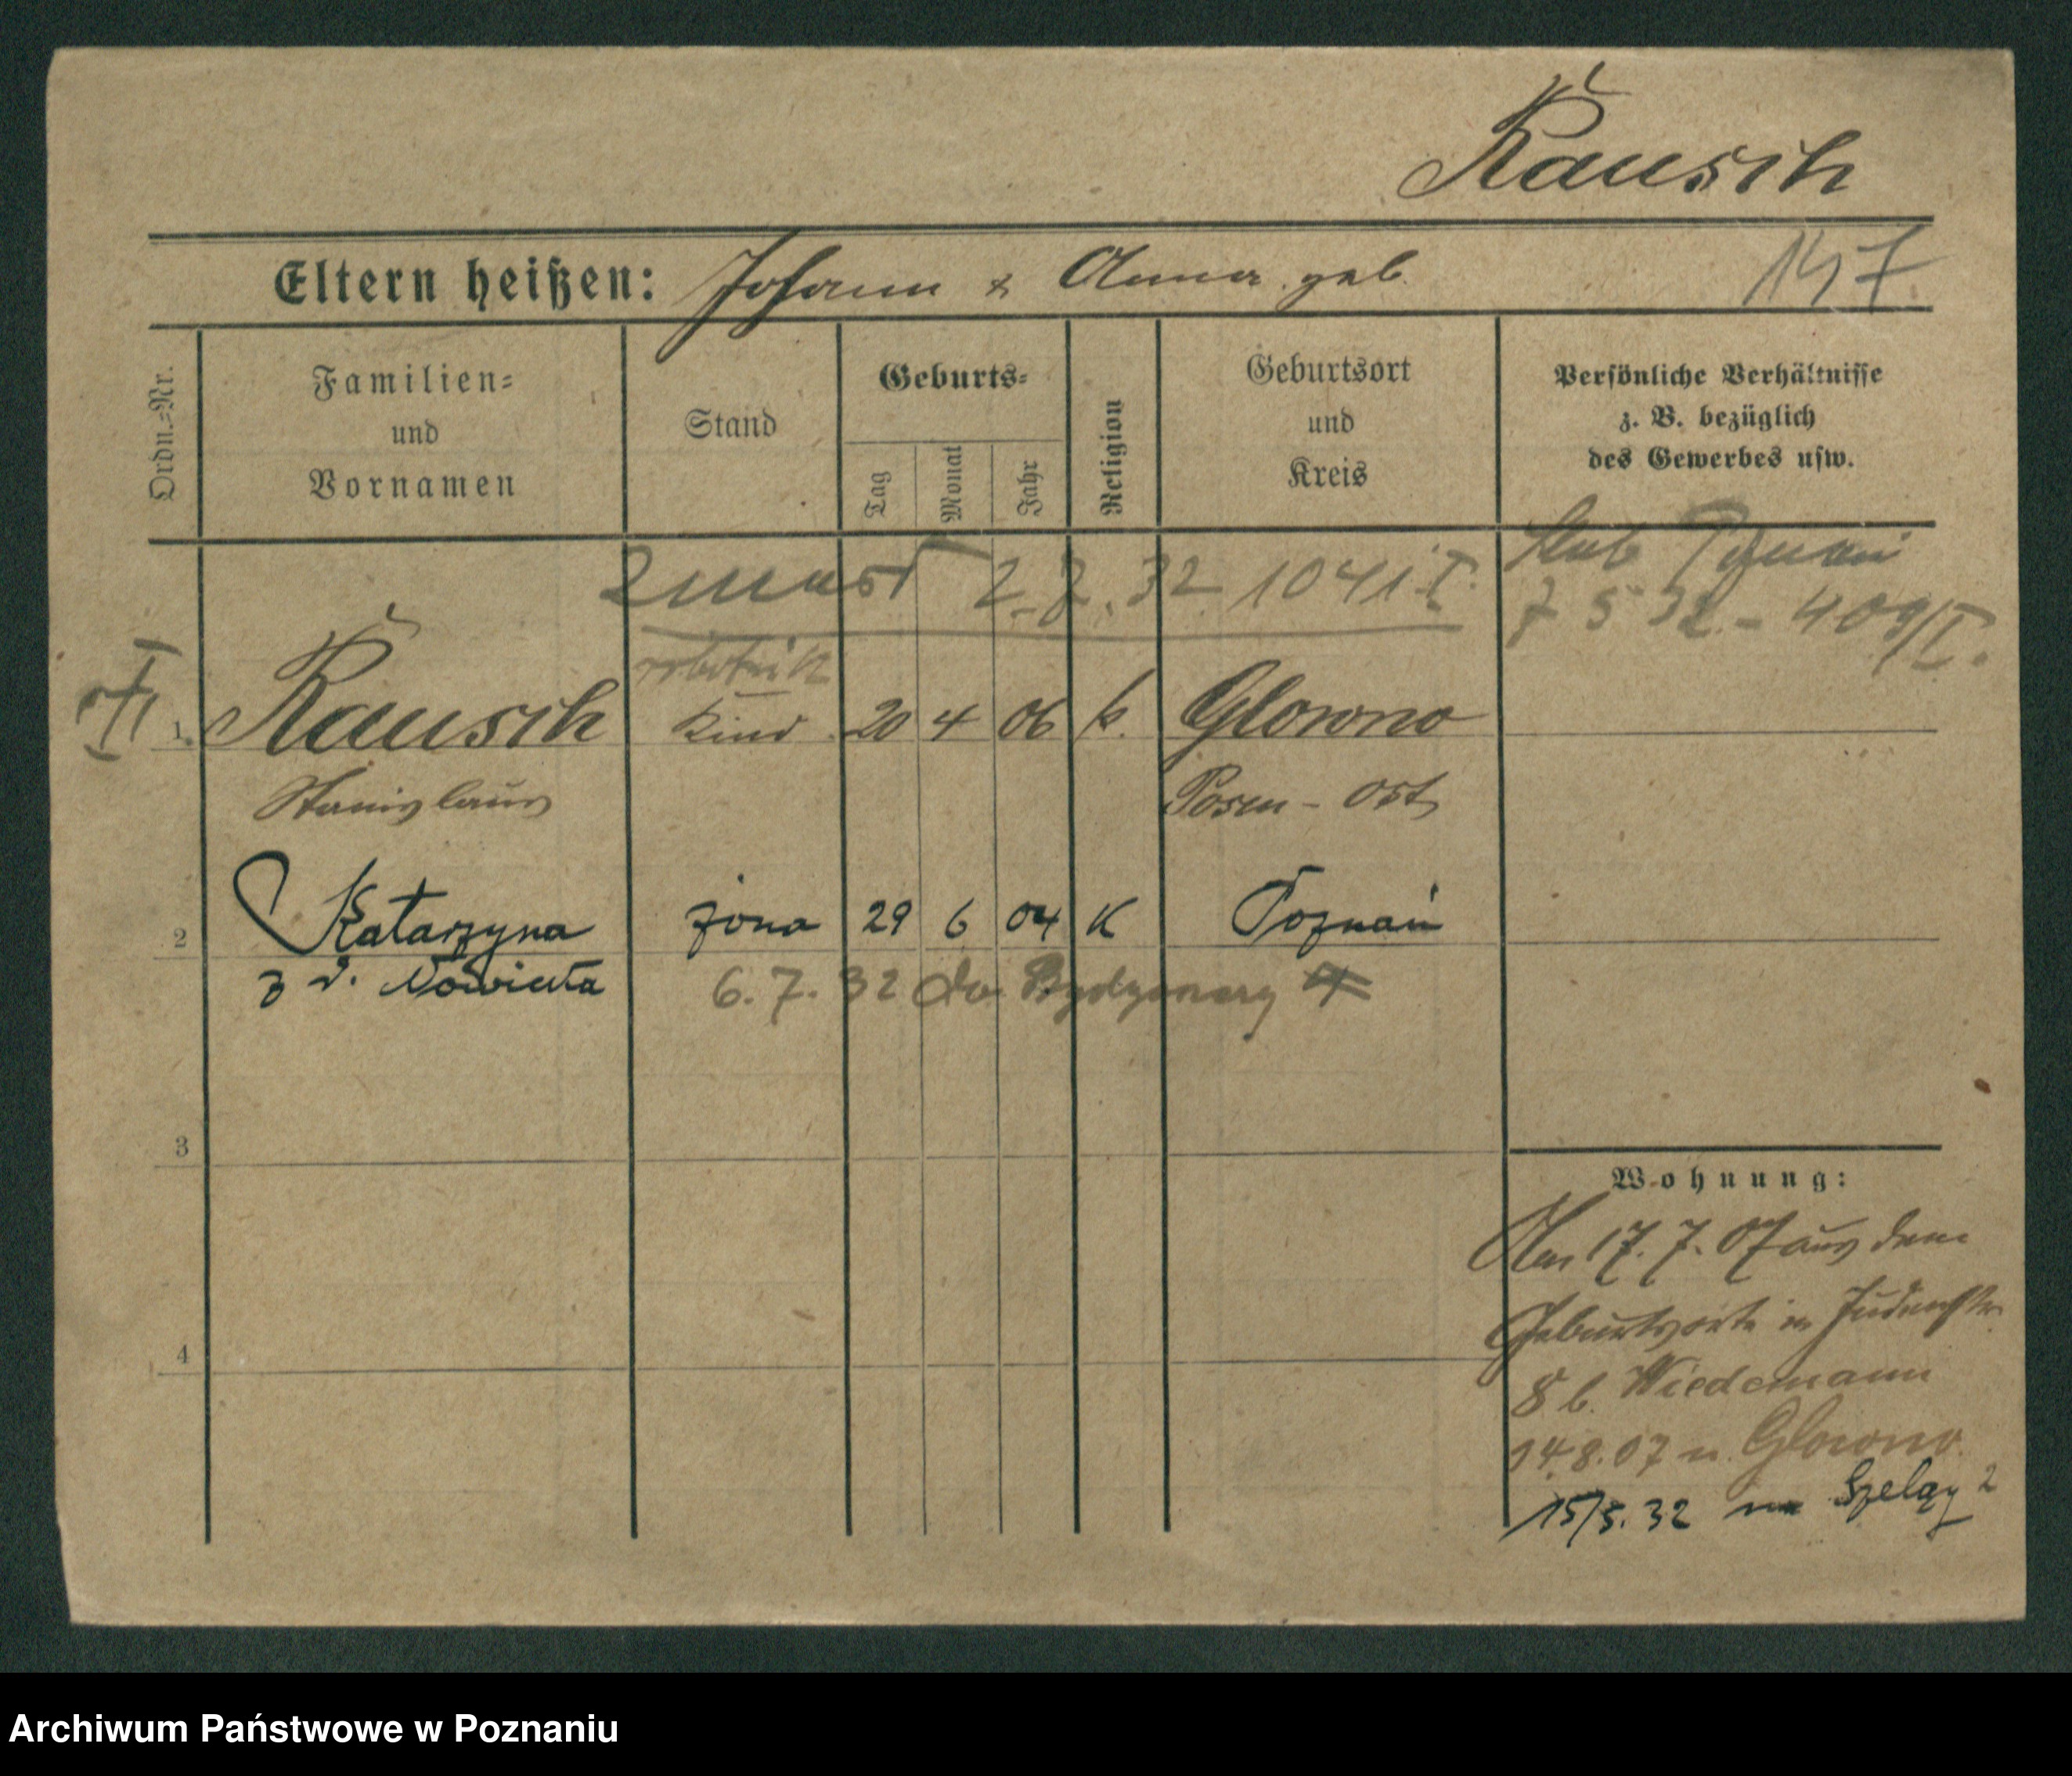 Rausch
Eltern heißen: Johann & Anna geb.
147
Ordn.-Nr.
Familien-
und
Vornamen
Stand
Geburts-
Tag
Monat
Jahr
Religion
Geburtsort
und
Kreis
Persönliche Verhältnisse
z. B. bezüglich
des Gewerbes usw.
zmarł 2.7.32 1041 I.
ślub Poznań
7 5 32 - 409/I.
robotnik
1 Rausch Kind 20 4 06 k. Glowno
Stanislaus Posen - Ost
2 Katarzyna żona 29 6 04 K Poznań
z d. Nowicka
6.7.32 do Bydgoszczy
3
4
Wohnung:
Am 17.7.07 aus dem
Geburtsorte n Judenstr.
8 b. Wiedemann
14.8.07 n. Glowno.
15/5.32 Szeląg 2
Archiwum Państwowe w Poznaniu